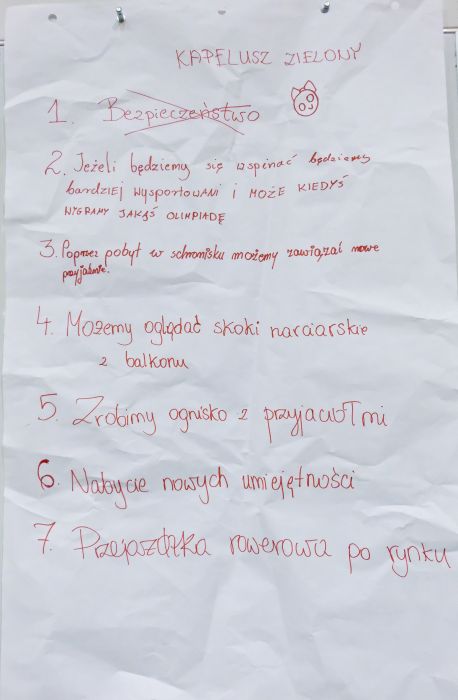 KAPELUSZ ZIELONY
1. Bezpieczeństwo
2. Jeżeli będziemy się wspinać będziemy
bardziej wysportowani i MOŻE KIEDYŚ
WYGRAMY JAKĄŚ OLIMPIADĘ
3. Poprzez pobyt w schronisku możemy zawiązać nowe
przyjaźnie.
4. Możemy oglądać skoki narciarskie
z balkonu
5. Zrobimy ognisko z przyjaciułmi
6. Nabycie nowych umiejętności
7. Przejażdżka rowerowa po rynku